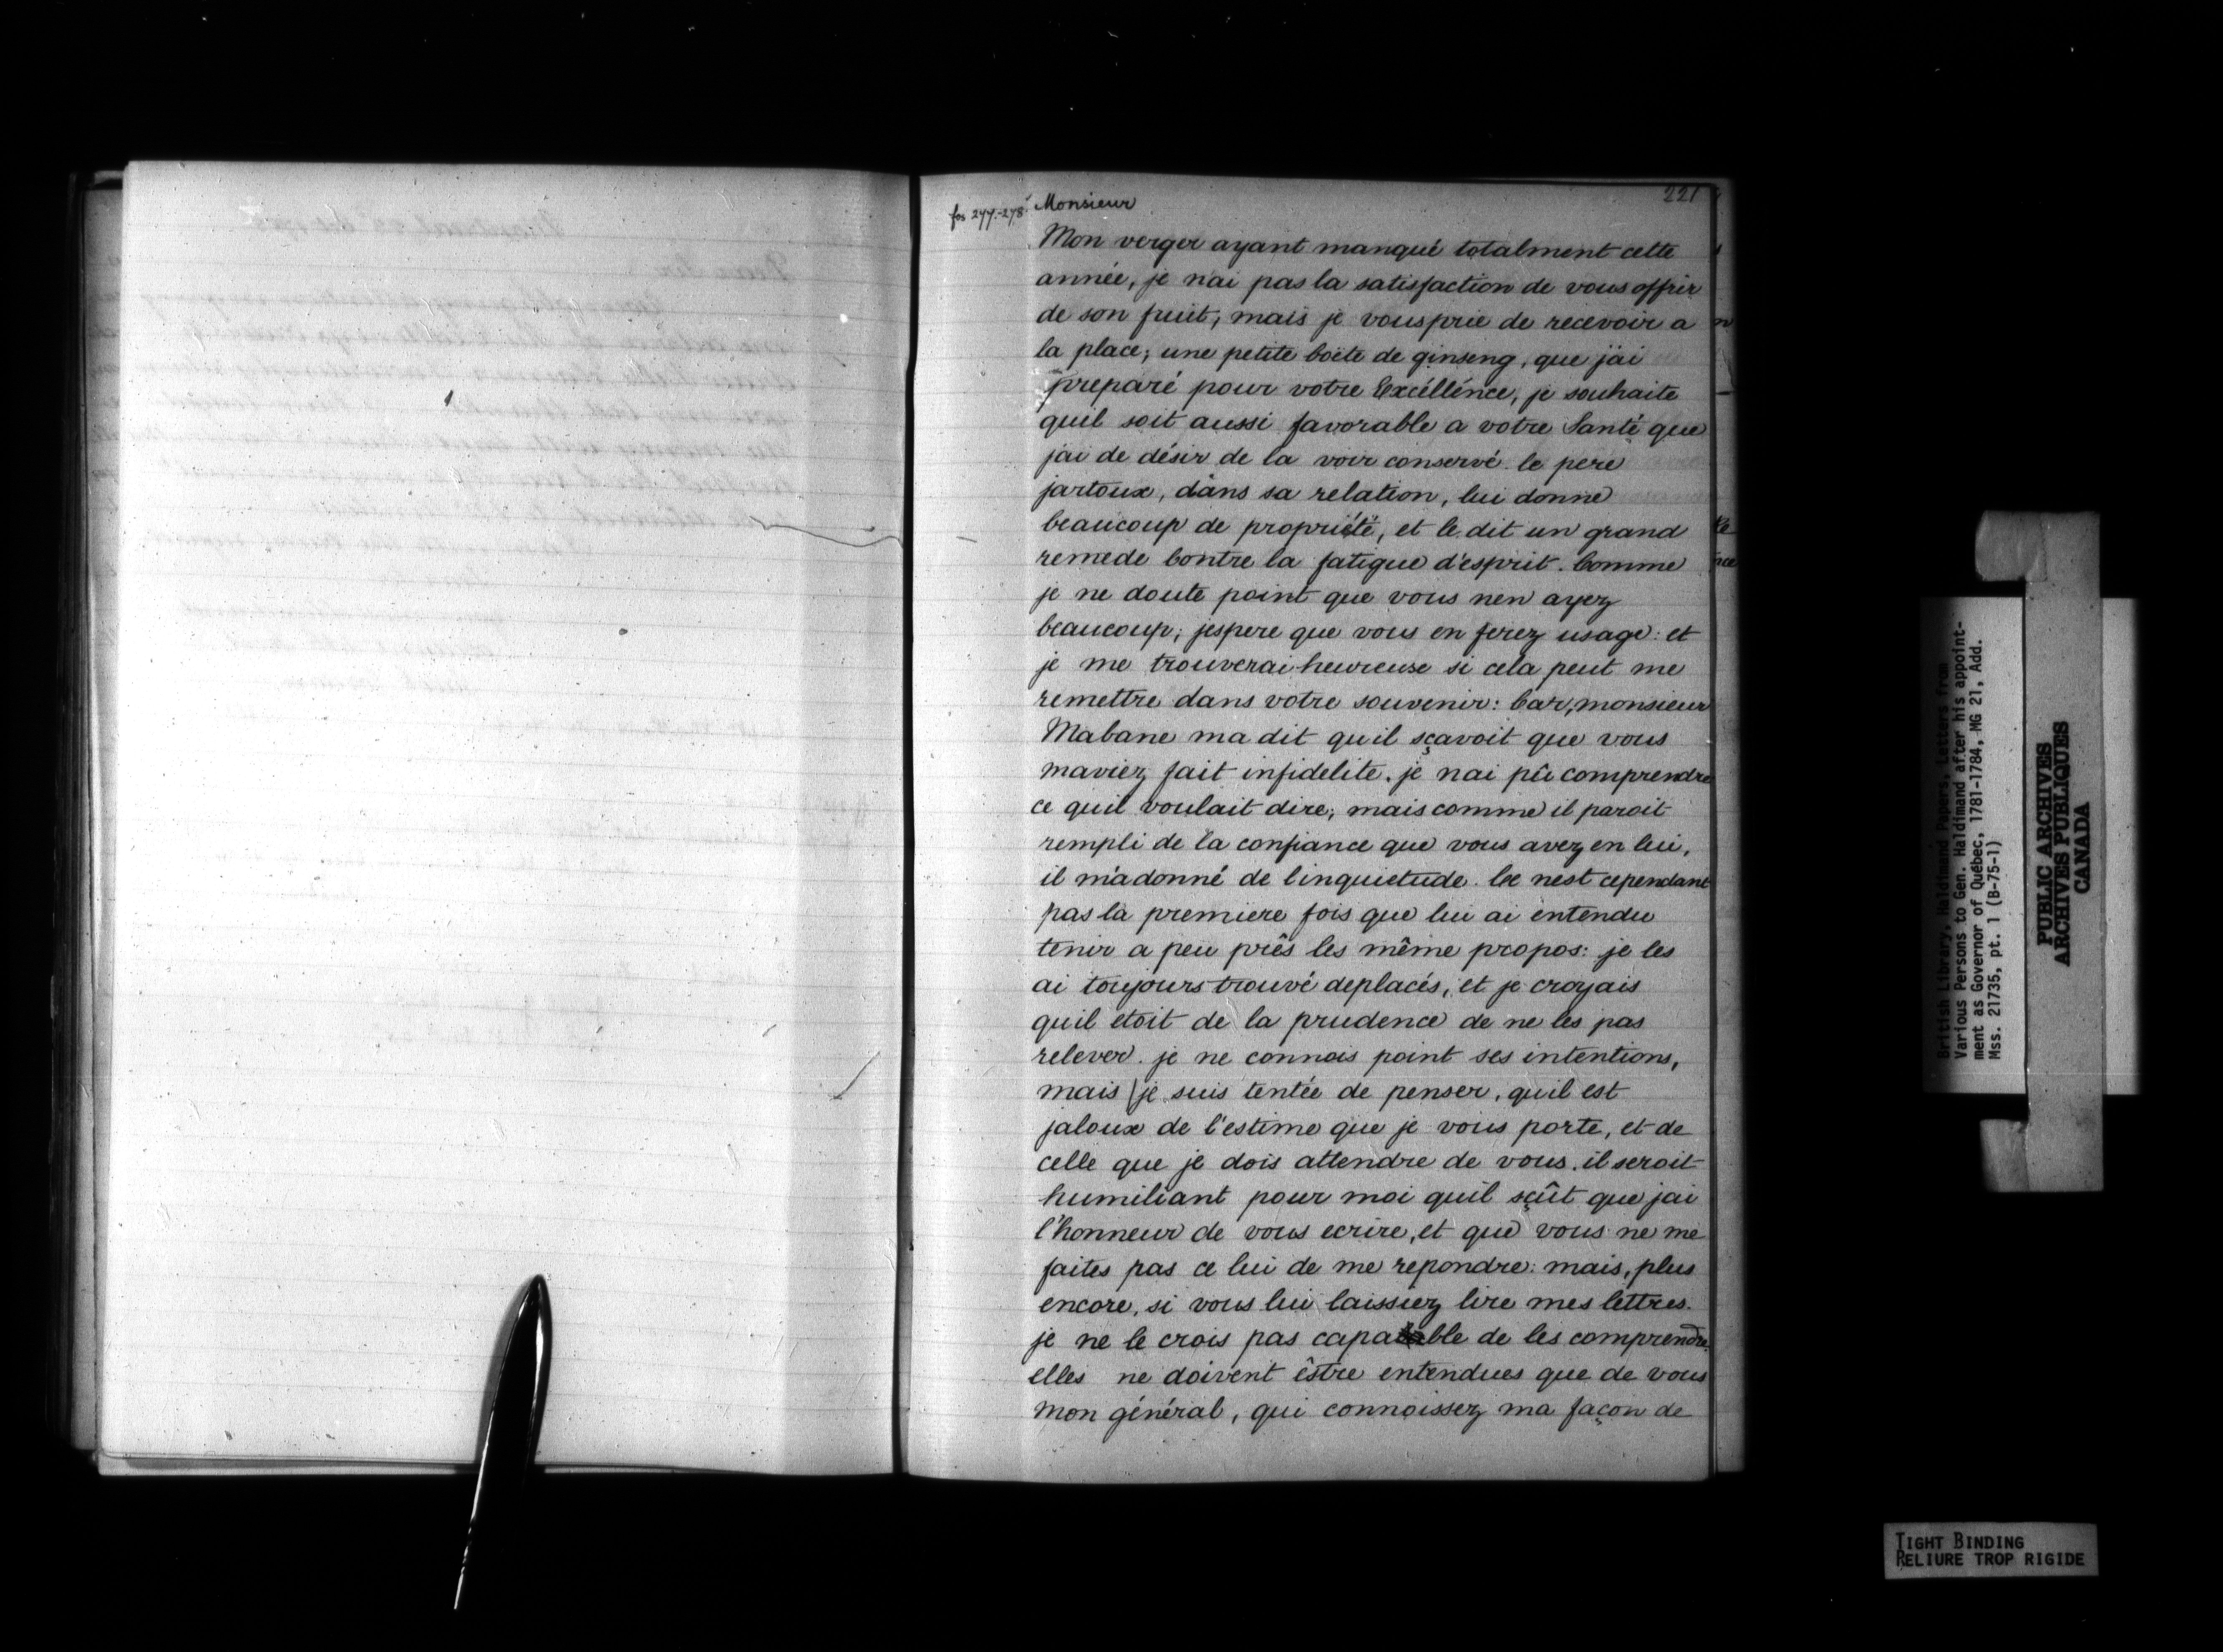 221
fos 277.-278.
Monsieur
Mon verger ayant manqué totalment cette
année, je n'ai pas la satisfaction de vous offrir
de son fruit, mais je vous prie de recevoir a
la place; une petite boëte de ginseng, que j'ai
preparé pour votre Excéllénce, je souhaite
quil soit aussi favorable a votre Santé que
jai de désir de la voir conservé. le pere
jartoux, dans sa relation, lui donne
beaucoup de propriété, et le dit un grand
remede Contre la fatigue d'esprit. Comme
je ne doute point que vous nen ayez
beaucoup; jespere que vous en ferez usage: et
je me trouverai heureuse si cela peut me
remettre dans votre souvenir: Car, monsieur
Mabane ma dit quil sçavoit que vous
maviez fait infidelite. je nai pû comprendre
ce quil voulait dire; mais comme il paroit
rempli de la confiance que vous avez en lui,
il m'a donné de linquietude. Ce nest cependant
pas la premiere fois que lui ai entendu
tenir a peu prês les même propos: je les
ai toujours trouvé deplacés, et je croyais
quil etoit de la prudence de ne les pas
relever. je ne connois point ses intentions,
mais je suis tentée de penser, quil est
jaloux de l'estime que je vous porte, et de
celle que je dois attendre de vous. il seroit
humiliant pour moi quil sçût que jai
l'honneur de vous ecrire, et que vous ne me
faites pas ce lui de me repondre: mais, plus
encore, si vous lui laissiez lire mes lettres.
je ne le crois pas capable de les comprendre.
elles ne doivent êstre entendues que de vous
mon général, qui connoissez ma façon de
British Library, Haldimand Papers, Letters from
Various Persons to Gen. Haldimand after his appoint-
ment as Governor of Québec, 1781-1784, MG 21, Add.
Mss. 21735, pt. 1 (B-75-1)
PUBLIC ARCHIVES
ARCHIVES PUBLIQUES
CANADA
TIGHT BINDING
RELIURE TROP RIGIDE